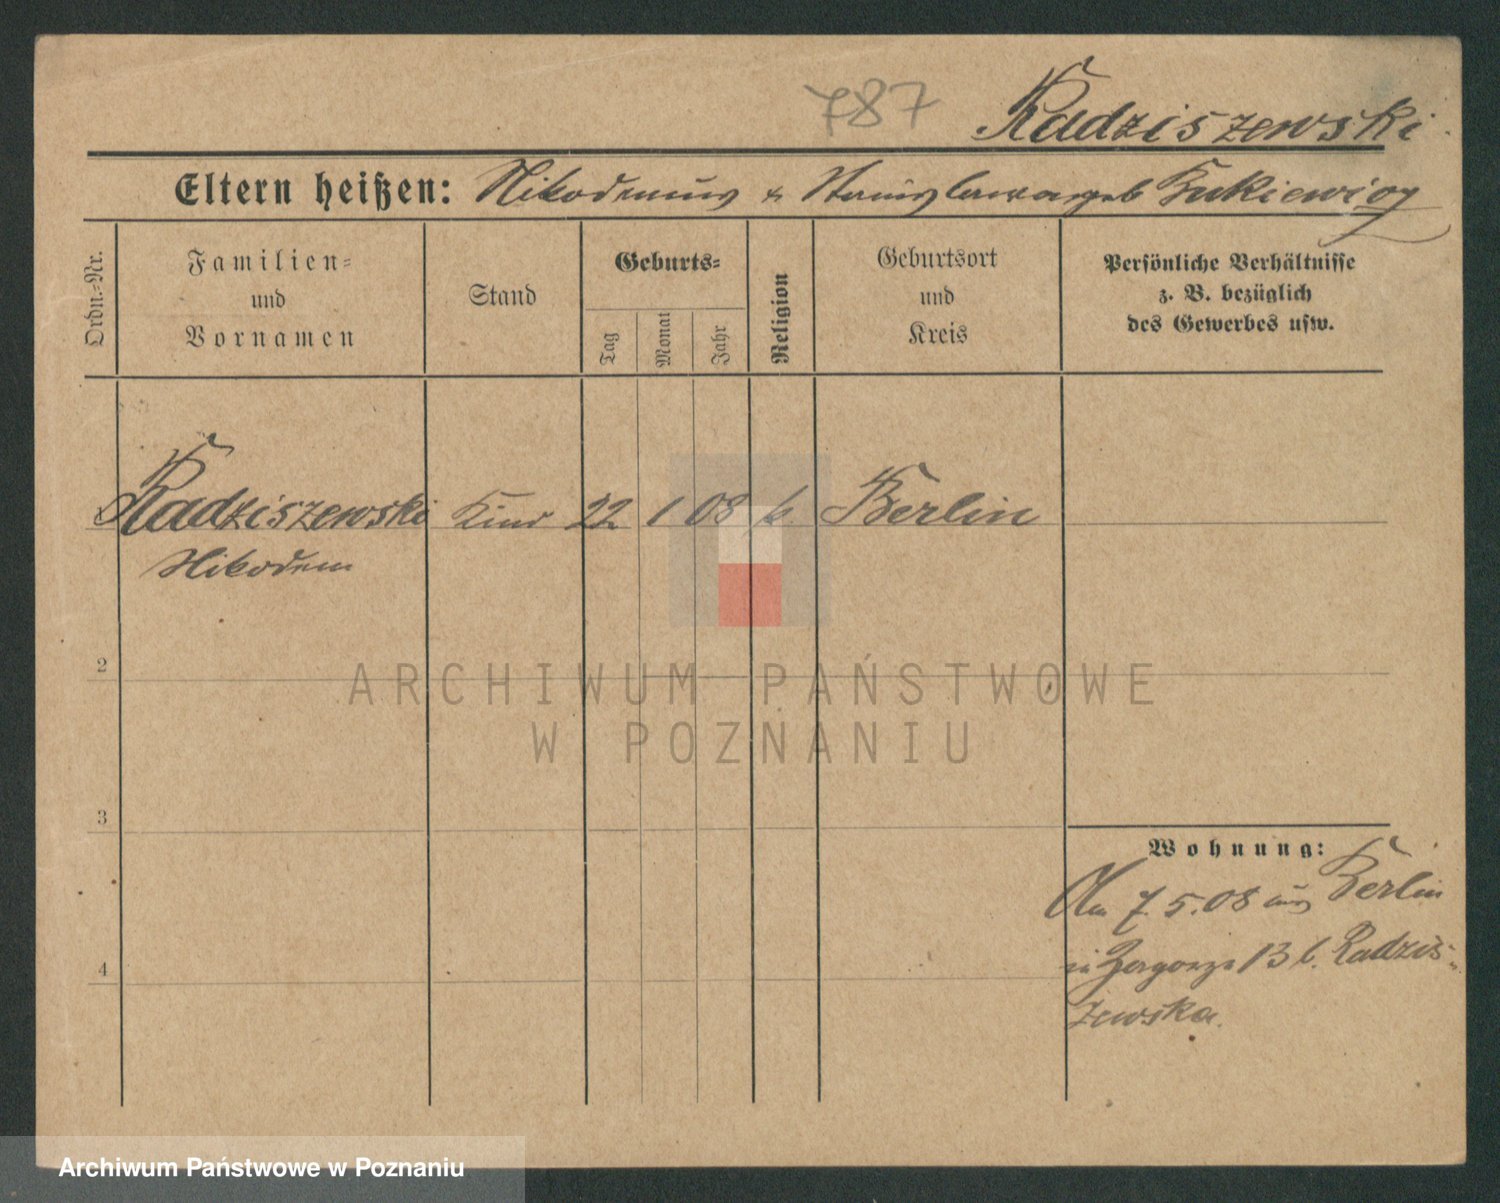 787 Radziszewski
Eltern heißen: Nikodemus & Stanislawa geb
Ordn.-Nr.
Familien-
und
Vornamen
Stand
Geburts-
Tag
Monat
Jahr
Religion
Geburtsort
und
Kreis
Persönliche Verhältnisse
z. B. bezüglich
des Gewerbes usw.
Radziszewski Kind 22 1 08 k. Berlin
Nikodem
2
3
4
Wohnung:
Am 7.5.08 aus Berlin
in 13 b. Radzis-
zewska.
ARCHIWUM PAŃSTWOWE
W POZNANIU
Archiwum Państwowe w Poznaniu